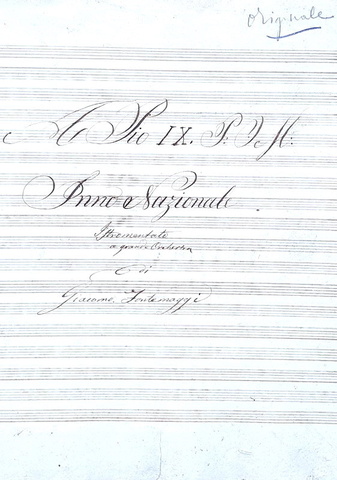 originale
A Pio IX. P. M:
Inno Nazionale
Istromentato
a grande Orchestra
di
Giacomo Fontemaggi